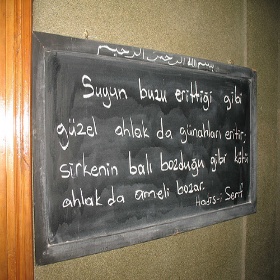 بسم الله الرحمن الرحيم
Suyun buzu erittiği gibi
güzel ahlak da günahları eritir;
sirkenin balı bozduğu gibi kötü
ahlak da ameli bozar.
Hadis-i Şerif